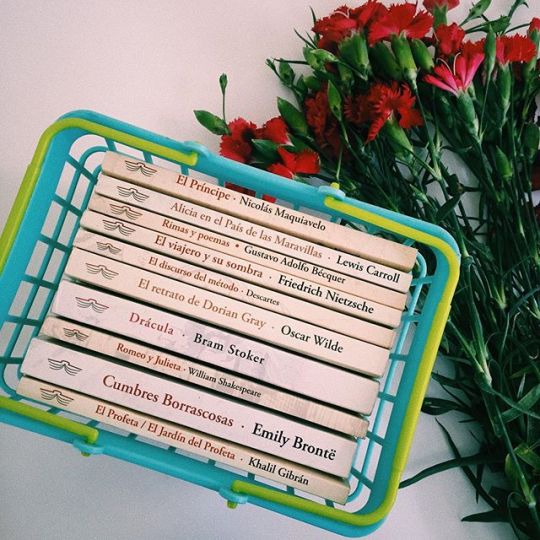 El Príncipe · Nicolás Maquiavelo
Alicia en el País de las Maravillas · Lewis Carroll
Rimas y poemas · Gustavo Adolfo Bécquer
El viajero y su sombra · Friedrich Nietzsche
El discurso del método · Descartes
El retrato de Dorian Gray · Oscar Wilde
Drácula · Bram Stoker
Romeo y Julieta · William Shakespeare
Cumbres Borrascosas · Emily Brontë
El Profeta / El Jardín del Profeta · Khalil Gibrán